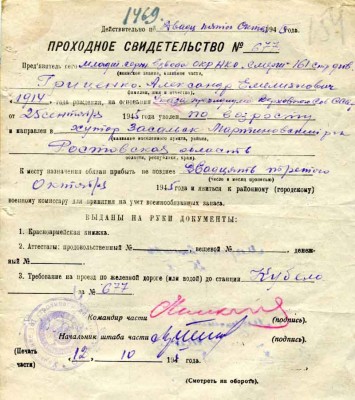 1469
Действительно по "Двадц пятое Октя 1945 года.
ПРОХОДНОЕ СВИДЕТЕЛЬСТВО № 677
Пред'явитель сего младш. серж. ОКР НКО "Смерш" 161
(воинское звание, наименование части,
Гриценко Александр Емельянович
(фамилия, имя и отчество)
1914 года рождения, на основании Указа Президиума Верховного Сов. СССР
от 25 сентября 1945 года уволен по возрасту
и направлен в хутор Мартыновский р-н
Ростовская область
(область, республика, край).
К месту назначения обязан прибыть не позднее Двадцать третьего
(число и месяц прописью)
Октября 1945 и явиться к районному (городскому)
военному комиссару для принятия на учет военнообязанных запаса.
ВЫДАНЫ НА РУКИ ДОКУМЕНТЫ:
1. Красноармейская книжка.
2. Аттестаты: продовольственный № вещевой № денеж-
ный №
3. Требования на проезд по железной дороге (или водой) до станции
за № 677
Командир части
(подпись).
Начальник штаба части
(подпись).
(Печать части) "12" 10 194 года.
(Смотреть на обороте).